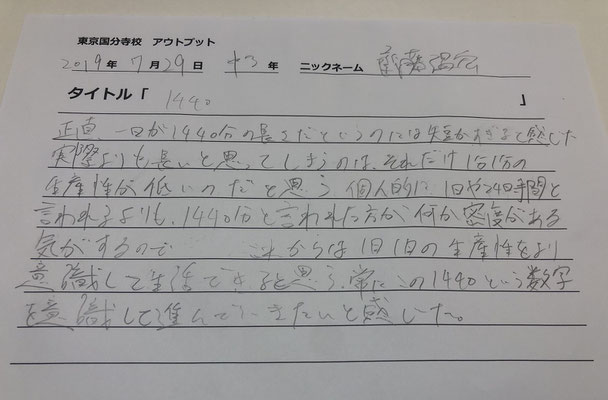 東京国分寺校 アウトプット
2019年 7月29日 中3年 ニックネーム
タイトル「 1440 」
正直、一日が1440分の長さだというのには短かすぎると感じた
実際よりも長いと思ってしまうのは、それだけ1分1分の
生産性が低いのだと思う 個人的に、1日や24時間と
言われるよりも、1440分と言われた方が何か密度がある
気がするので これからは1日1日の生産性をより
意識して生活できると思う、常にこの1440という数字
を意識して進んでいきたいと感じた。